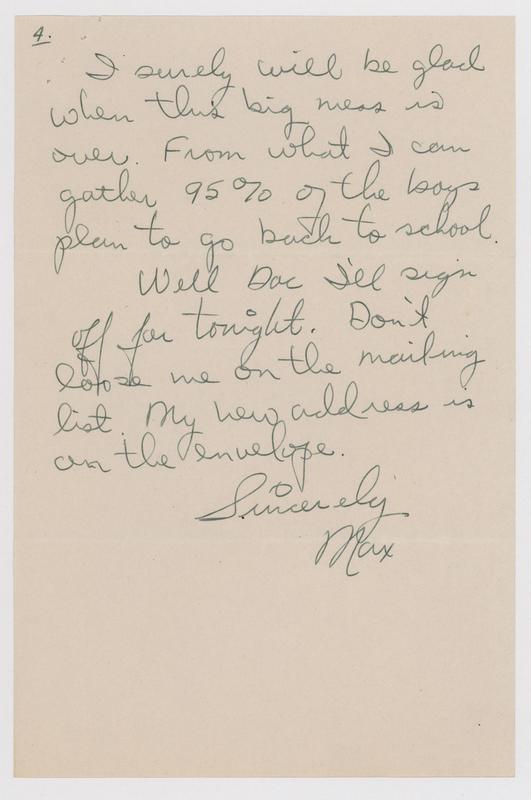 4.
I surely will be glad
when this big mess is
over. From what I can
gather 95% of the boys
plan to go back to school.
Well Doc I'll sign
off for tonight. Don't
loose me on the mailing
list. My new address is
on the envelope.
Sincerely
Max